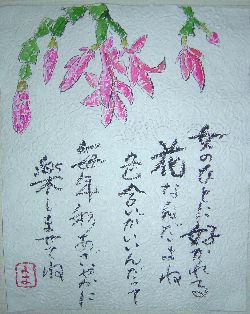 女のひとに好かれる
花なんだよね
色合いがいいんだって
毎年あざやかに
楽しませてね